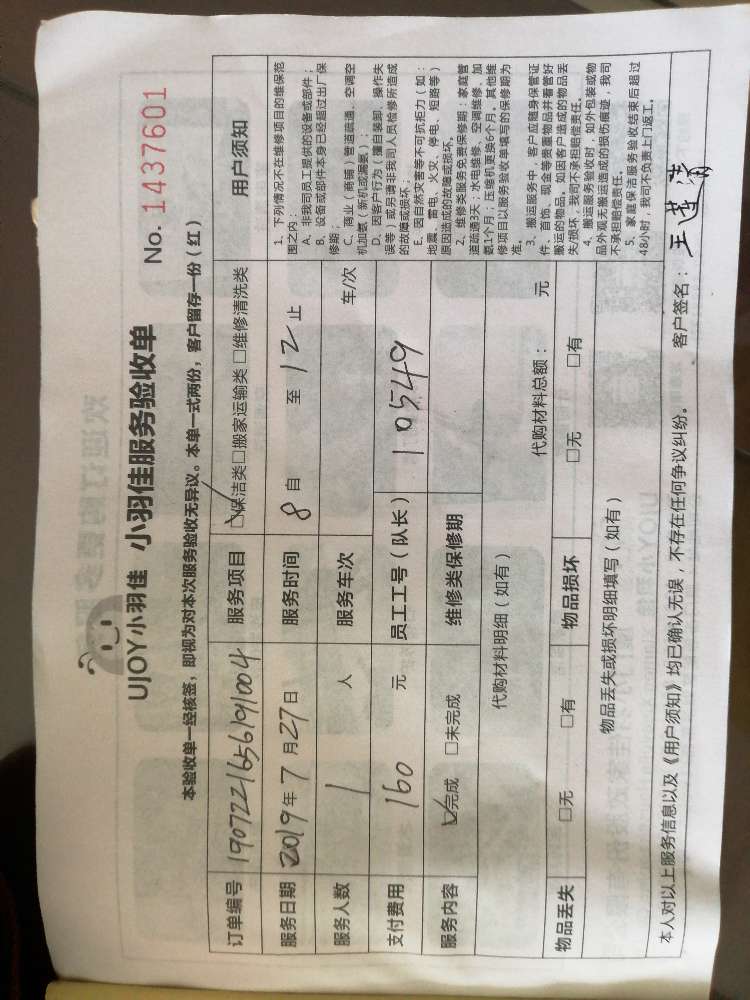 UJOY小羽佳 小羽佳服务验收单
No. 1437601
本验收单一经核签，即视为对本次服务验收无异议。本单一式两份，客户留存一份（红）
订单编号 190722165619１004 服务项目 ☑保洁类□搬家运输类 □维修清洗类
服务日期 2019年7月27日 服务时间 8自 至 12止
服务人数 1 人 服务车次 车/次
支付费用 160 元 员工工号（队长） 10549
服务内容 ☑完成 □未完成 维修类保修期
代购材料明细（如有） 代购材料总额： 元
物品丢失 □无 □有 物品损坏 □无 □有
物品丢失或损坏明细填写（如有）
用户须知
1、下列情况不在维修项目的维保范
围之内：
A、非我司员工提供的设备或部件；
B、设备或部件本身已经超过出厂保
修期；
C、商业（商铺）管道疏通、空调空
机加氨（新机或漏氨）；
D、因客户行为（擅自装卸、操作失
误等）或另请非我司人员检修所造成
的故障或损坏；
E、因自然灾害等不可抗拒力（如：
地震、雷电、火灾、停电、短路等）
原因造成的故障或损坏。
2、维修类服务免费保修期：家庭管
道疏通3天；水电维修、空调维修、加
氨1个月；压缩机更换6个月。其他维
修项目以服务验收单填写的保修期为
准。
3、搬运服务中，客户应随身保管证
件、首饰、现金等贵重物品并看管好
搬运的物品，如因客户造成的物品丢
失/损坏，我司不承担赔偿责任。
4、搬运服务验收时，如外包装或物
品外观无搬运造成的损伤痕迹，我司
不承担赔偿责任。
5、家庭保洁服务验收结束后超过
48小时，我司不负责上门返工。
本人对以上服务信息以及《用户须知》均已确认无误，不存在任何争议纠纷。 客户签名： 王莲蒲